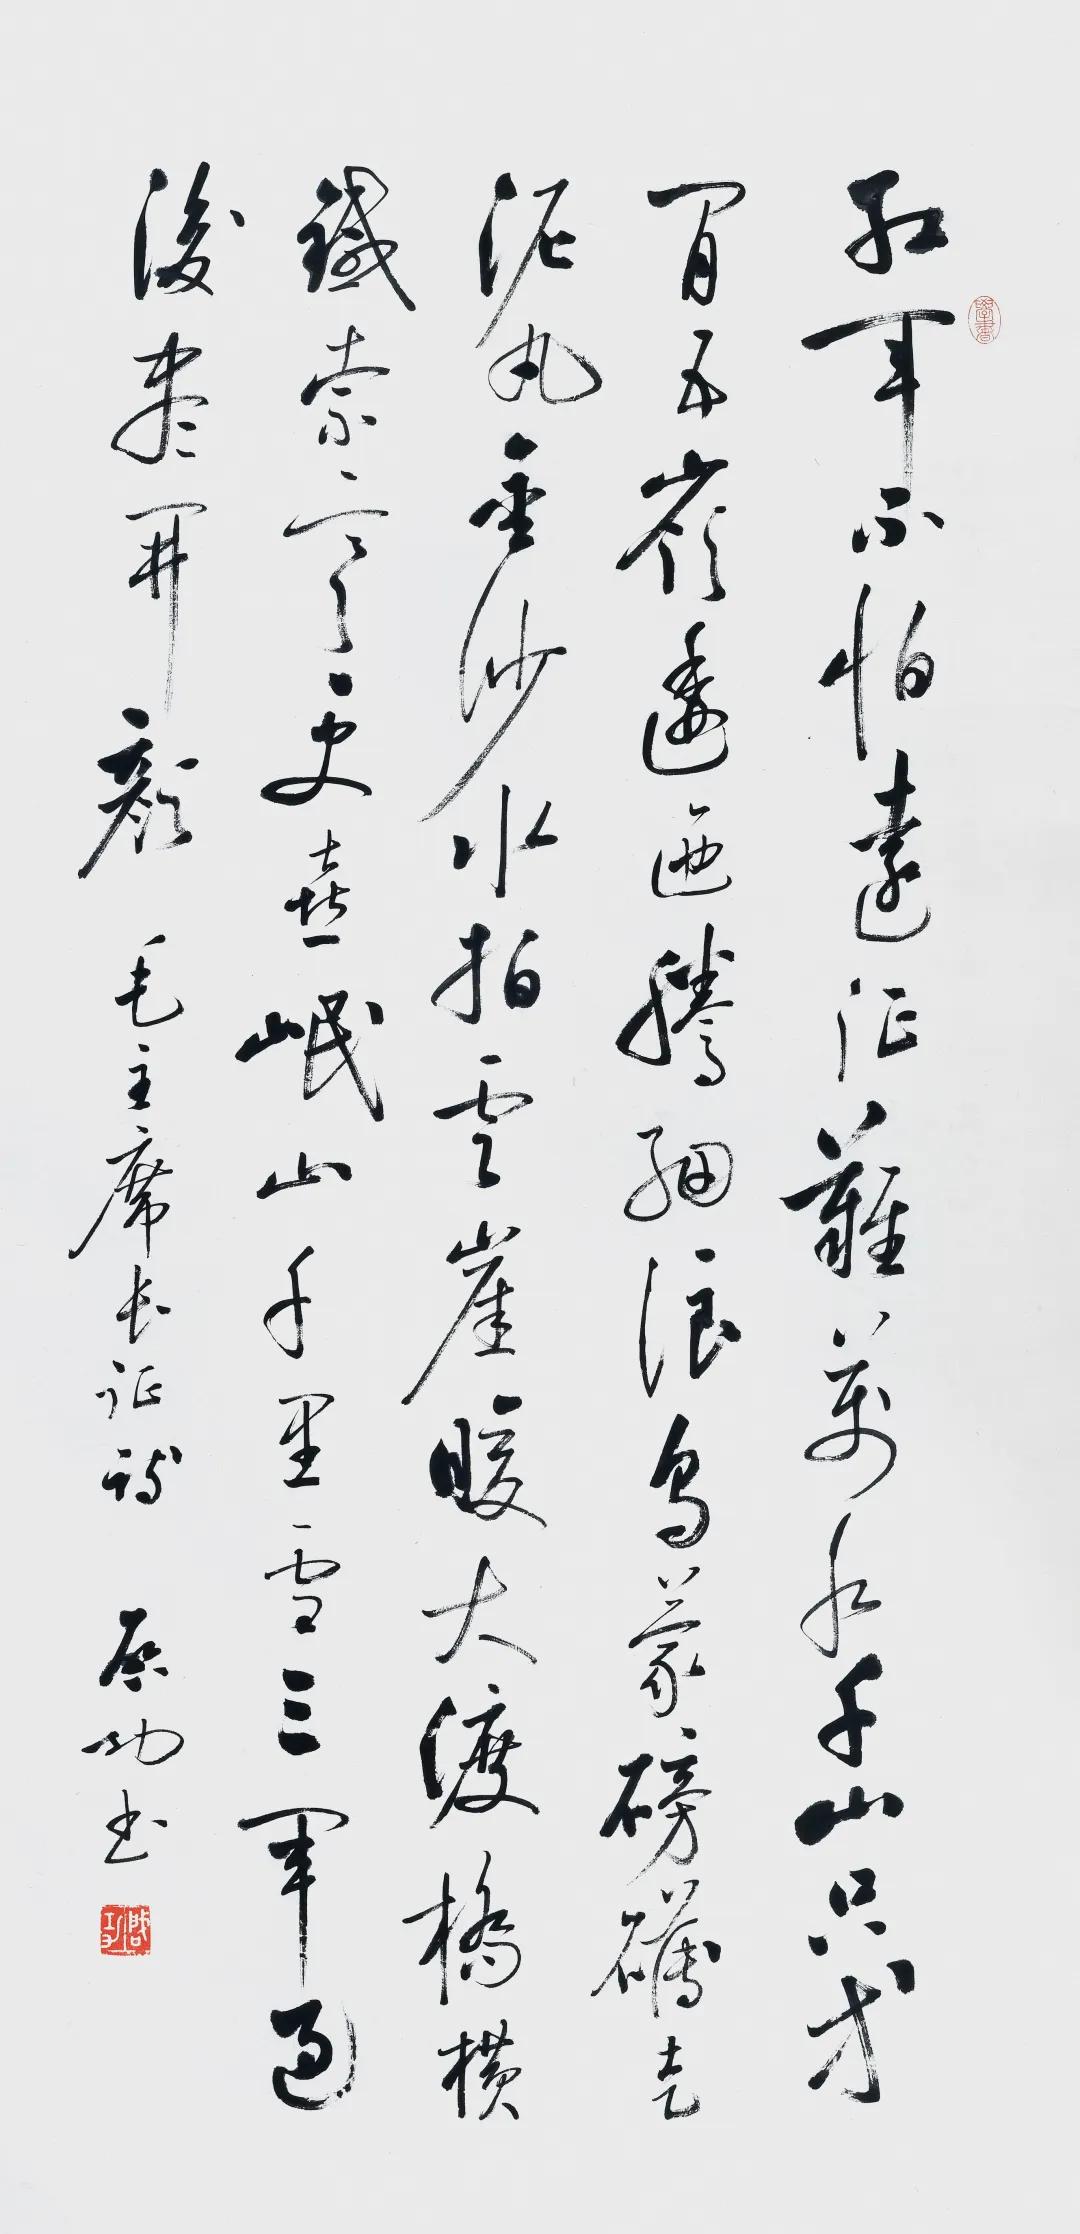 學書
紅軍不怕遠征難萬水千山只等
閒五嶺逶迤騰細浪烏蒙磅礴走
泥丸金沙水拍雲崖暖大渡橋橫
鐵索寒更喜岷山千里雪三軍過
後盡開顏 毛主席長征詩 啟功書
啟功